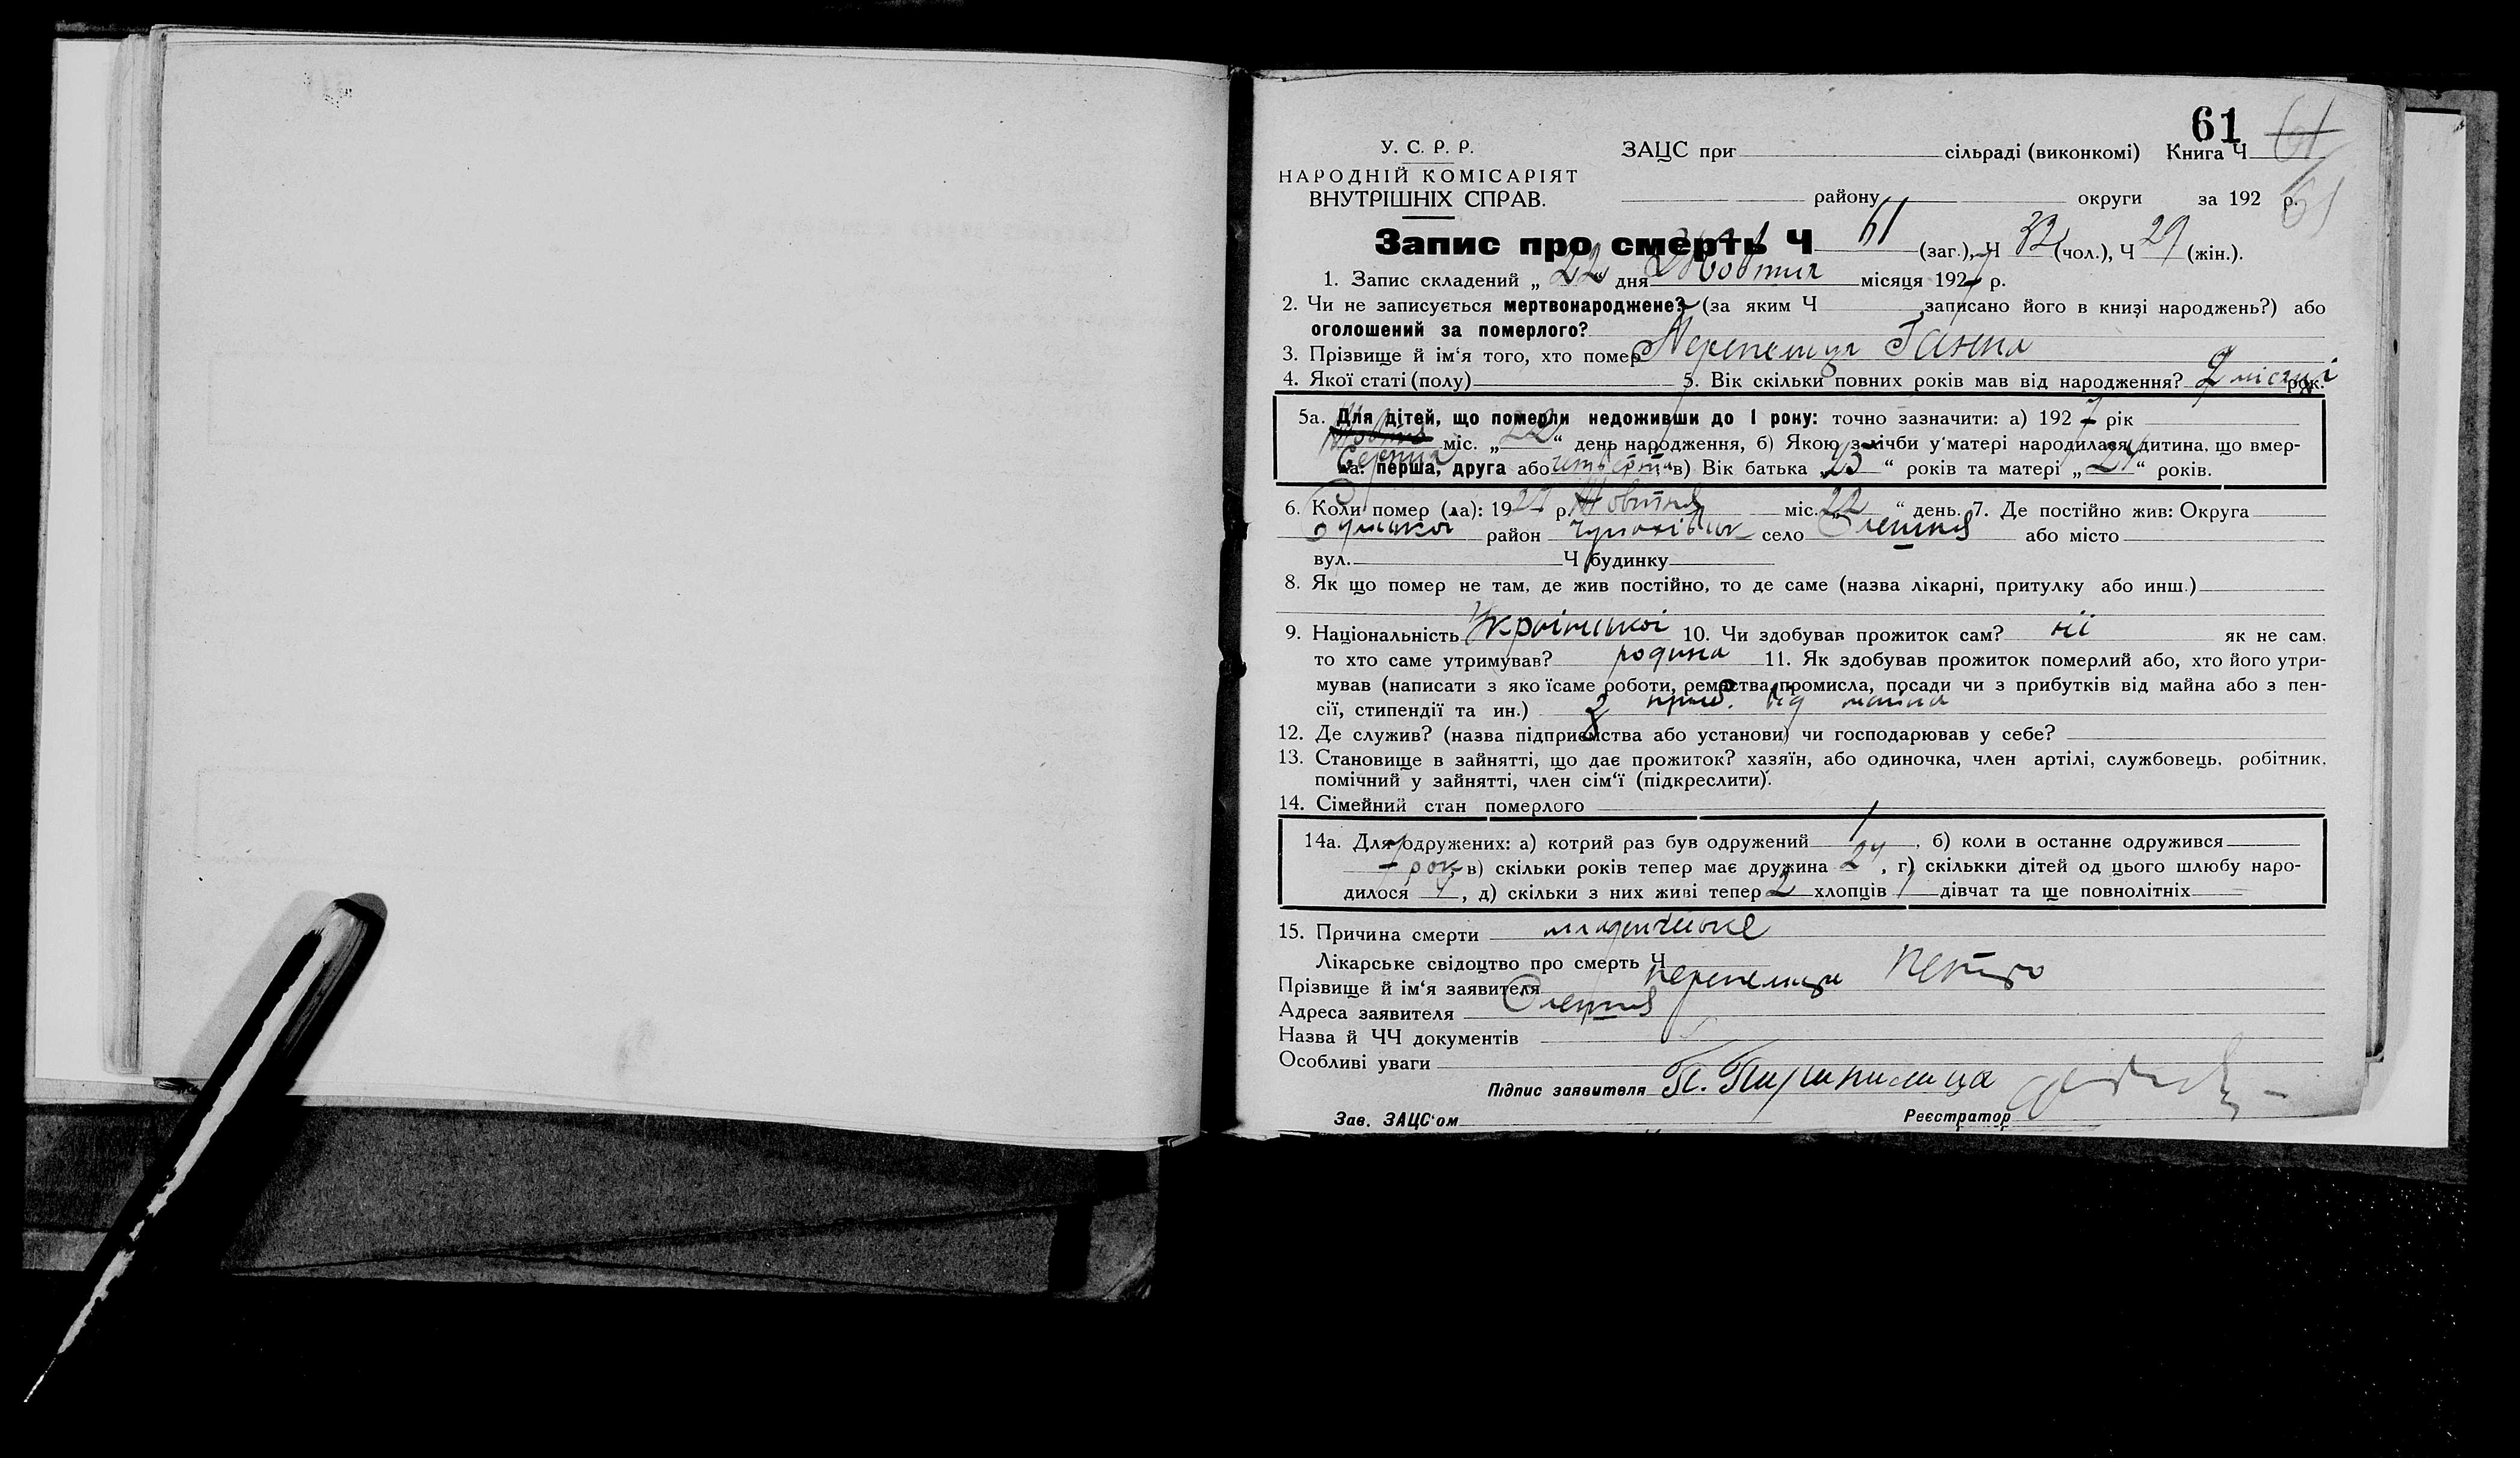 61 61
У. С. Р. Р. ЗАЦС при сільраді (виконкомі) Книга Ч
НАРОДНІЙ КОМІСАРІЯТ
ВНУТРІШНІХ СПРАВ. району округи за 192 р. 61
Запис про смерть Ч 61 (заг.), Ч 32 (чол.), Ч 29 (жін.).
1. Запис складений „ 22 “ дня Жовтня місяця 1927 р.
2. Чи не записується мертвонароджене? (за яким Ч записано його в книзі народжень?) або
оголошений за померлого?
3. Прізвище й ім‘я того, хто помер Перепелиця Ганна
4. Якої статі (полу) 5. Вік скільки повних років мав від народження? 2 місяці рок.
5а. Для дітей, що померли недоживши до 1 року: точно зазначити: а) 1927 рік
Серпня міс. „ 22 “ день народження, б) Якою з лічби у матері народилася дитина, що вмер-
ла: перша, друга або четверта в) Вік батька „ 25 “ років та матері „ 24 “ років.
6. Коли помер (ла): 1927 р. Жовтня міс. „ 22 “ день. 7. Де постійно жив: Округа
Сумської район село Олешня або місто
вул. Ч будинку
8. Як що помер не там, де жив постійно, то де саме (назва лікарні, притулку або инш.)
9. Національність Української 10. Чи здобував прожиток сам? ні як не сам.
то хто саме утримував? родина 11. Як здобував прожиток померлий або, хто його утри-
мував (написати з яко їсаме роботи, ремества, промисла, посади чи з прибутків від майна або з пен-
сії, стипендії та ин.) З приб. від майна
12. Де служив? (назва підприємства або установи) чи господарював у себе?
13. Становище в зайнятті, що дає прожиток? хазяїн, або одиночка, член артілі, службовець, робітник,
помічний у зайнятті, член сім‘ї (підкреслити).
14. Сімейний стан померлого
14а. Для одружених: а) котрий раз був одружений 1, б) коли в останнє одружився
7 рок в) скільки років тепер має дружина 24, г) скількки дітей од цього шлюбу наро-
дилося 4, д) скільки з них живі тепер 2 хлопців 1 дівчат та ще повнолітніх
15. Причина смерти младенческое
Лікарське свідоцтво про смерть Ч
Прізвище й ім‘я заявителя Перепелиця Петро
Адреса заявителя Олешня
Назва й ЧЧ документів
Особливі уваги
Підпис заявителя П. Пирипилица
Зав. ЗАЦС‘ом Реєстратор